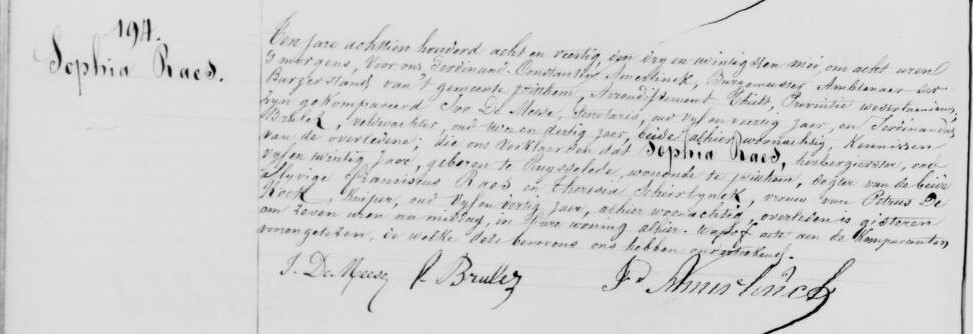 194.
Sophia Raes.
Ten jare achttien honderd acht en veertig, den dry en twintigsten mei, om acht uren
's morgens, voor ons Ferdinand-Constantin Amerlinck, Burgemeester Ambtenaar der
Burgerstand van 't gemeente pitthem, Arrondissement Thielt, Provintie westvlaanderen,
zyn gekompareerd Ivo De Meese, secretaris, oud vyf en veertig jaer, en Ferdinandus
Brulez, veldwachter, oud twee en dertig jaer, beide alhier woonachtig, Kennissen
van de overledene, die ons verklaerden dat Sophia Raes, herbergierster, oud
vyf en twintig jare, geboren te Ruysselede, wonende te pitthem, dogter van de beijde
Franciscus Raes en theresia vrouw van Petrus De
Kock, kuiper, oud vyf en vertig jaer, alhier woonachtig, overleden is gisteren
om zeven uren na middag, in hare woning alhier. Waerof acte aen de komparanten
voorengelezen, de welke dese benevens ons hebben ondertekend.
I. De Meese F. Brulez Fd Amerlinck